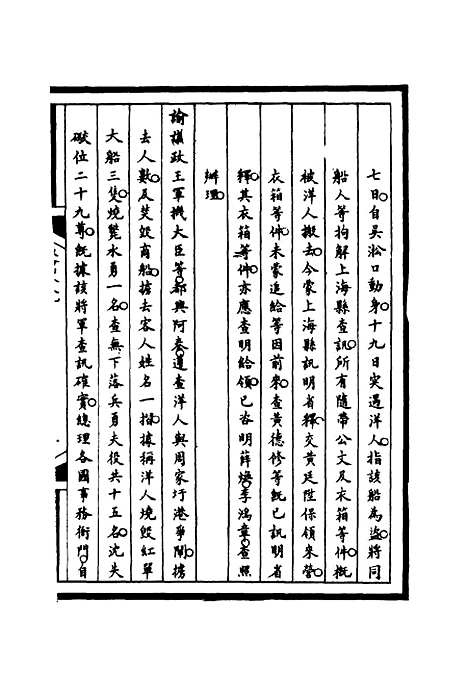 七日。自吳淞口動身。十九日突遇洋人。指該船為盜。將同
船人等拘解上海縣查訊。所有隨帶公文及衣箱等件。概
被洋人搬去。今蒙上海縣訊明省釋。交黃陞保領來營。
衣箱等件。未蒙追給等因前來。查黃德修等既已訊明省
釋。其衣箱等件。亦應查明給領。已咨明薛煥。李鴻章。查照
辦理。
諭議政王軍機大臣等。都興阿奏。遵查洋人與周家圩港爭鬧。擄
去人數。及焚毀商船。擄去客人姓名一摺。據稱洋人燒毀紅單
大船三隻。燒斃水勇一名。查無下落兵勇夫役共十五名。沈失
礮位二十九尊。既據該將軍查訊確實。總理各國事務衙門。自